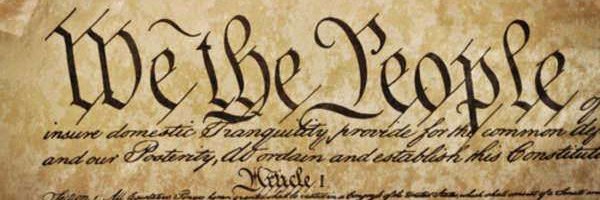 We the People of
insure domestic Tranquility, provide for the common def
and our Posterity, do ordain and establish this Constitut
Article I